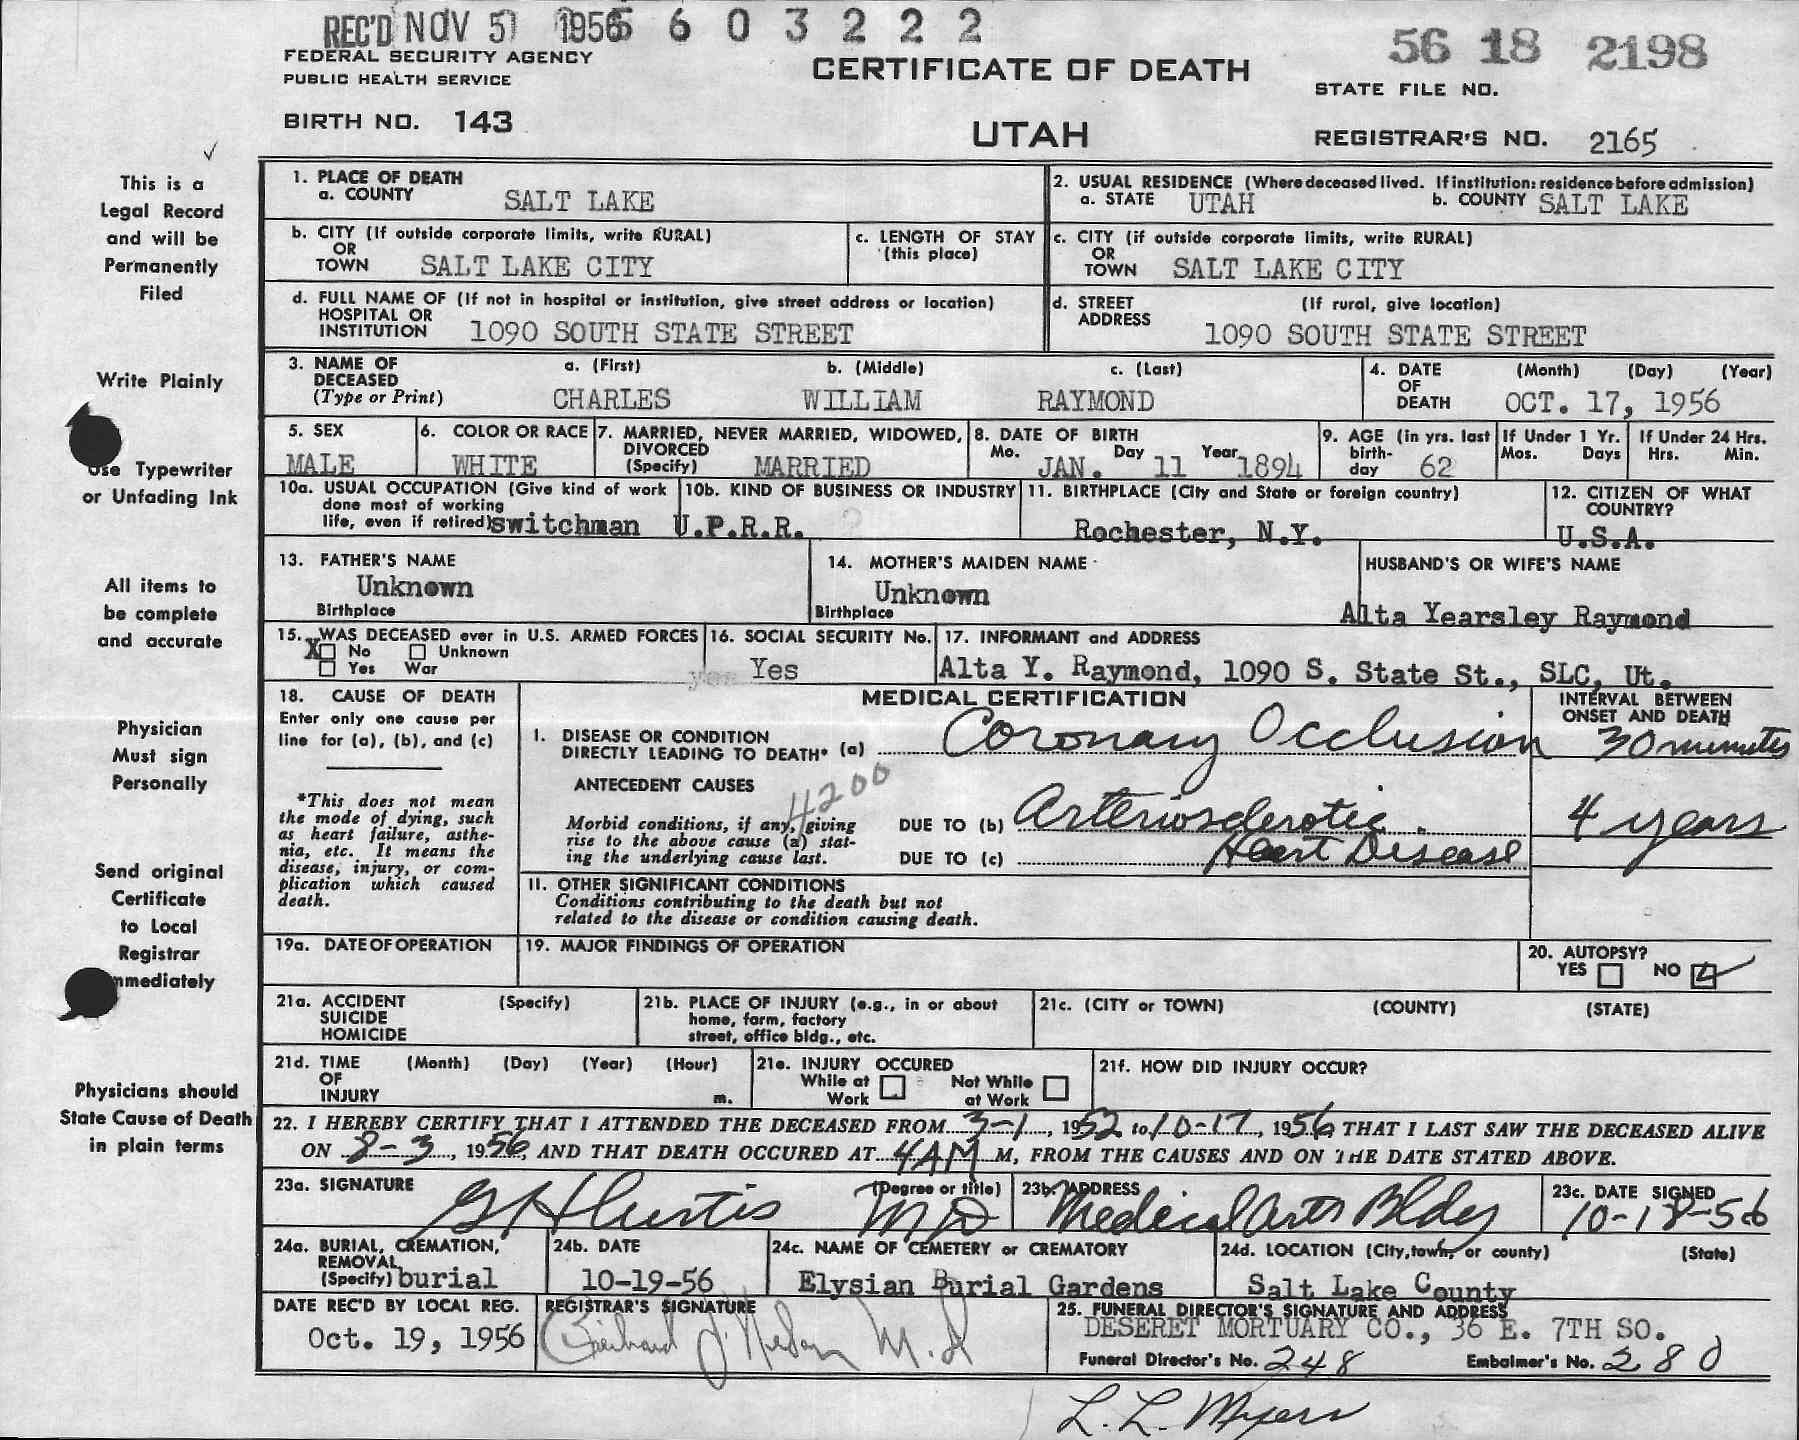 REC'D NOV 5 1956 5 6 0 3 2 2 2
56 18 2198
FEDERAL SECURITY AGENCY
PUBLIC HEALTH SERVICE
CERTIFICATE OF DEATH
STATE FILE NO.
BIRTH NO. 143
UTAH
REGISTRAR'S NO. 2165
This is a
Legal Record
and will be
Permanently
Filed
Write Plainly
Use Typewriter
or Unfading Ink
All items to
be complete
and accurate
Physician
Must sign
Personally
Send original
Certificate
to Local
Registrar
mmediately
Physicians should
State Cause of Death
in plain terms
1. PLACE OF DEATH
a. COUNTY SALT LAKE
2. USUAL RESIDENCE (Where deceased lived. If institution: residence before admission)
a. STATE UTAH b. COUNTY SALT LAKE
b. CITY (If outside corporate limits, write RURAL)
OR
TOWN SALT LAKE CITY
c. LENGTH OF STAY
(this place)
c. CITY (if outside corporate limits, write RURAL)
OR
TOWN SALT LAKE CITY
d. FULL NAME OF (If not in hospital or institution, give street address or location)
HOSPITAL OR
INSTITUTION 1090 SOUTH STATE STREET
d. STREET (If rural, give location)
ADDRESS 1090 SOUTH STATE STREET
3. NAME OF a. (First) b. (Middle) c. (Last)
DECEASED
(Type or Print) CHARLES WILLIAM RAYMOND
4. DATE (Month) (Day) (Year)
OF
DEATH OCT. 17, 1956
5. SEX
MALE
6. COLOR OR RACE
WHITE
7. MARRIED, NEVER MARRIED, WIDOWED,
DIVORCED
(Specify) MARRIED
8. DATE OF BIRTH
Mo. Day Year
JAN. 11 1894
9. AGE (in yrs. last
birth-
day 62
If Under 1 Yr.
Mos. Days
If Under 24 Hrs.
Hrs. Min.
10a. USUAL OCCUPATION (Give kind of work
done most of working
life, even if retired) switchman
10b. KIND OF BUSINESS OR INDUSTRY
U.P.R.R.
11. BIRTHPLACE (City and State or foreign country)
Rochester, N.Y.
12. CITIZEN OF WHAT
COUNTRY?
U.S.A.
13. FATHER'S NAME
Unknown
Birthplace
14. MOTHER'S MAIDEN NAME
Unknown
Birthplace
HUSBAND'S OR WIFE'S NAME
Alta Yearsley Raymond
15. WAS DECEASED ever in U.S. ARMED FORCES
X No Unknown
Yes War
16. SOCIAL SECURITY No.
yes Yes
17. INFORMANT and ADDRESS
Alta Y. Raymond, 1090 S. State St., SLC, Ut.
18. CAUSE OF DEATH
Enter only one cause per
line for (a), (b), and (c)
*This does not mean
the mode of dying, such
as heart failure, asthe-
nia, etc. It means the
disease, injury, or com-
plication which caused
death.
MEDICAL CERTIFICATION
INTERVAL BETWEEN
ONSET AND DEATH
I. DISEASE OR CONDITION
DIRECTLY LEADING TO DEATH* (a) Coronary Occlusion 30 minutes
ANTECEDENT CAUSES
4200
Morbid conditions, if any, giving
rise to the above cause (a) stat-
ing the underlying cause last.
DUE TO (b) Arteriosclerotic 4 years
DUE TO (c) Heart Disease
II. OTHER SIGNIFICANT CONDITIONS
Conditions contributing to the death but not
related to the disease or condition causing death.
19a. DATE OF OPERATION
19. MAJOR FINDINGS OF OPERATION
20. AUTOPSY?
YES NO
21a. ACCIDENT (Specify)
SUICIDE
HOMICIDE
21b. PLACE OF INJURY (e.g., in or about
home, farm, factory
street, office bldg., etc.
21c. (CITY or TOWN) (COUNTY) (STATE)
21d. TIME (Month) (Day) (Year) (Hour)
OF
INJURY m.
21e. INJURY OCCURED
While at Not While
Work at Work
21f. HOW DID INJURY OCCUR?
22. I HEREBY CERTIFY THAT I ATTENDED THE DECEASED FROM 3-1, 1952 to 10-17, 1956, THAT I LAST SAW THE DECEASED ALIVE
ON 8-3, 1956, AND THAT DEATH OCCURED AT 4AM M, FROM THE CAUSES AND ON THE DATE STATED ABOVE.
23a. SIGNATURE (Degree or title)
G H Curtis MD
23b. ADDRESS
Medical Arts Bldg
23c. DATE SIGNED
10-18-56
24a. BURIAL, CREMATION,
REMOVAL
(Specify) burial
24b. DATE
10-19-56
24c. NAME OF CEMETERY or CREMATORY
Elysian Burial Gardens
24d. LOCATION (City, town, or county) (State)
Salt Lake County
DATE REC'D BY LOCAL REG.
Oct. 19, 1956
REGISTRAR'S SIGNATURE
M.D
25. FUNERAL DIRECTOR'S SIGNATURE AND ADDRESS
DESERET MORTUARY CO., 36 E. 7TH SO.
Funeral Director's No. 248 Embalmer's No. 280
L. L. Myers